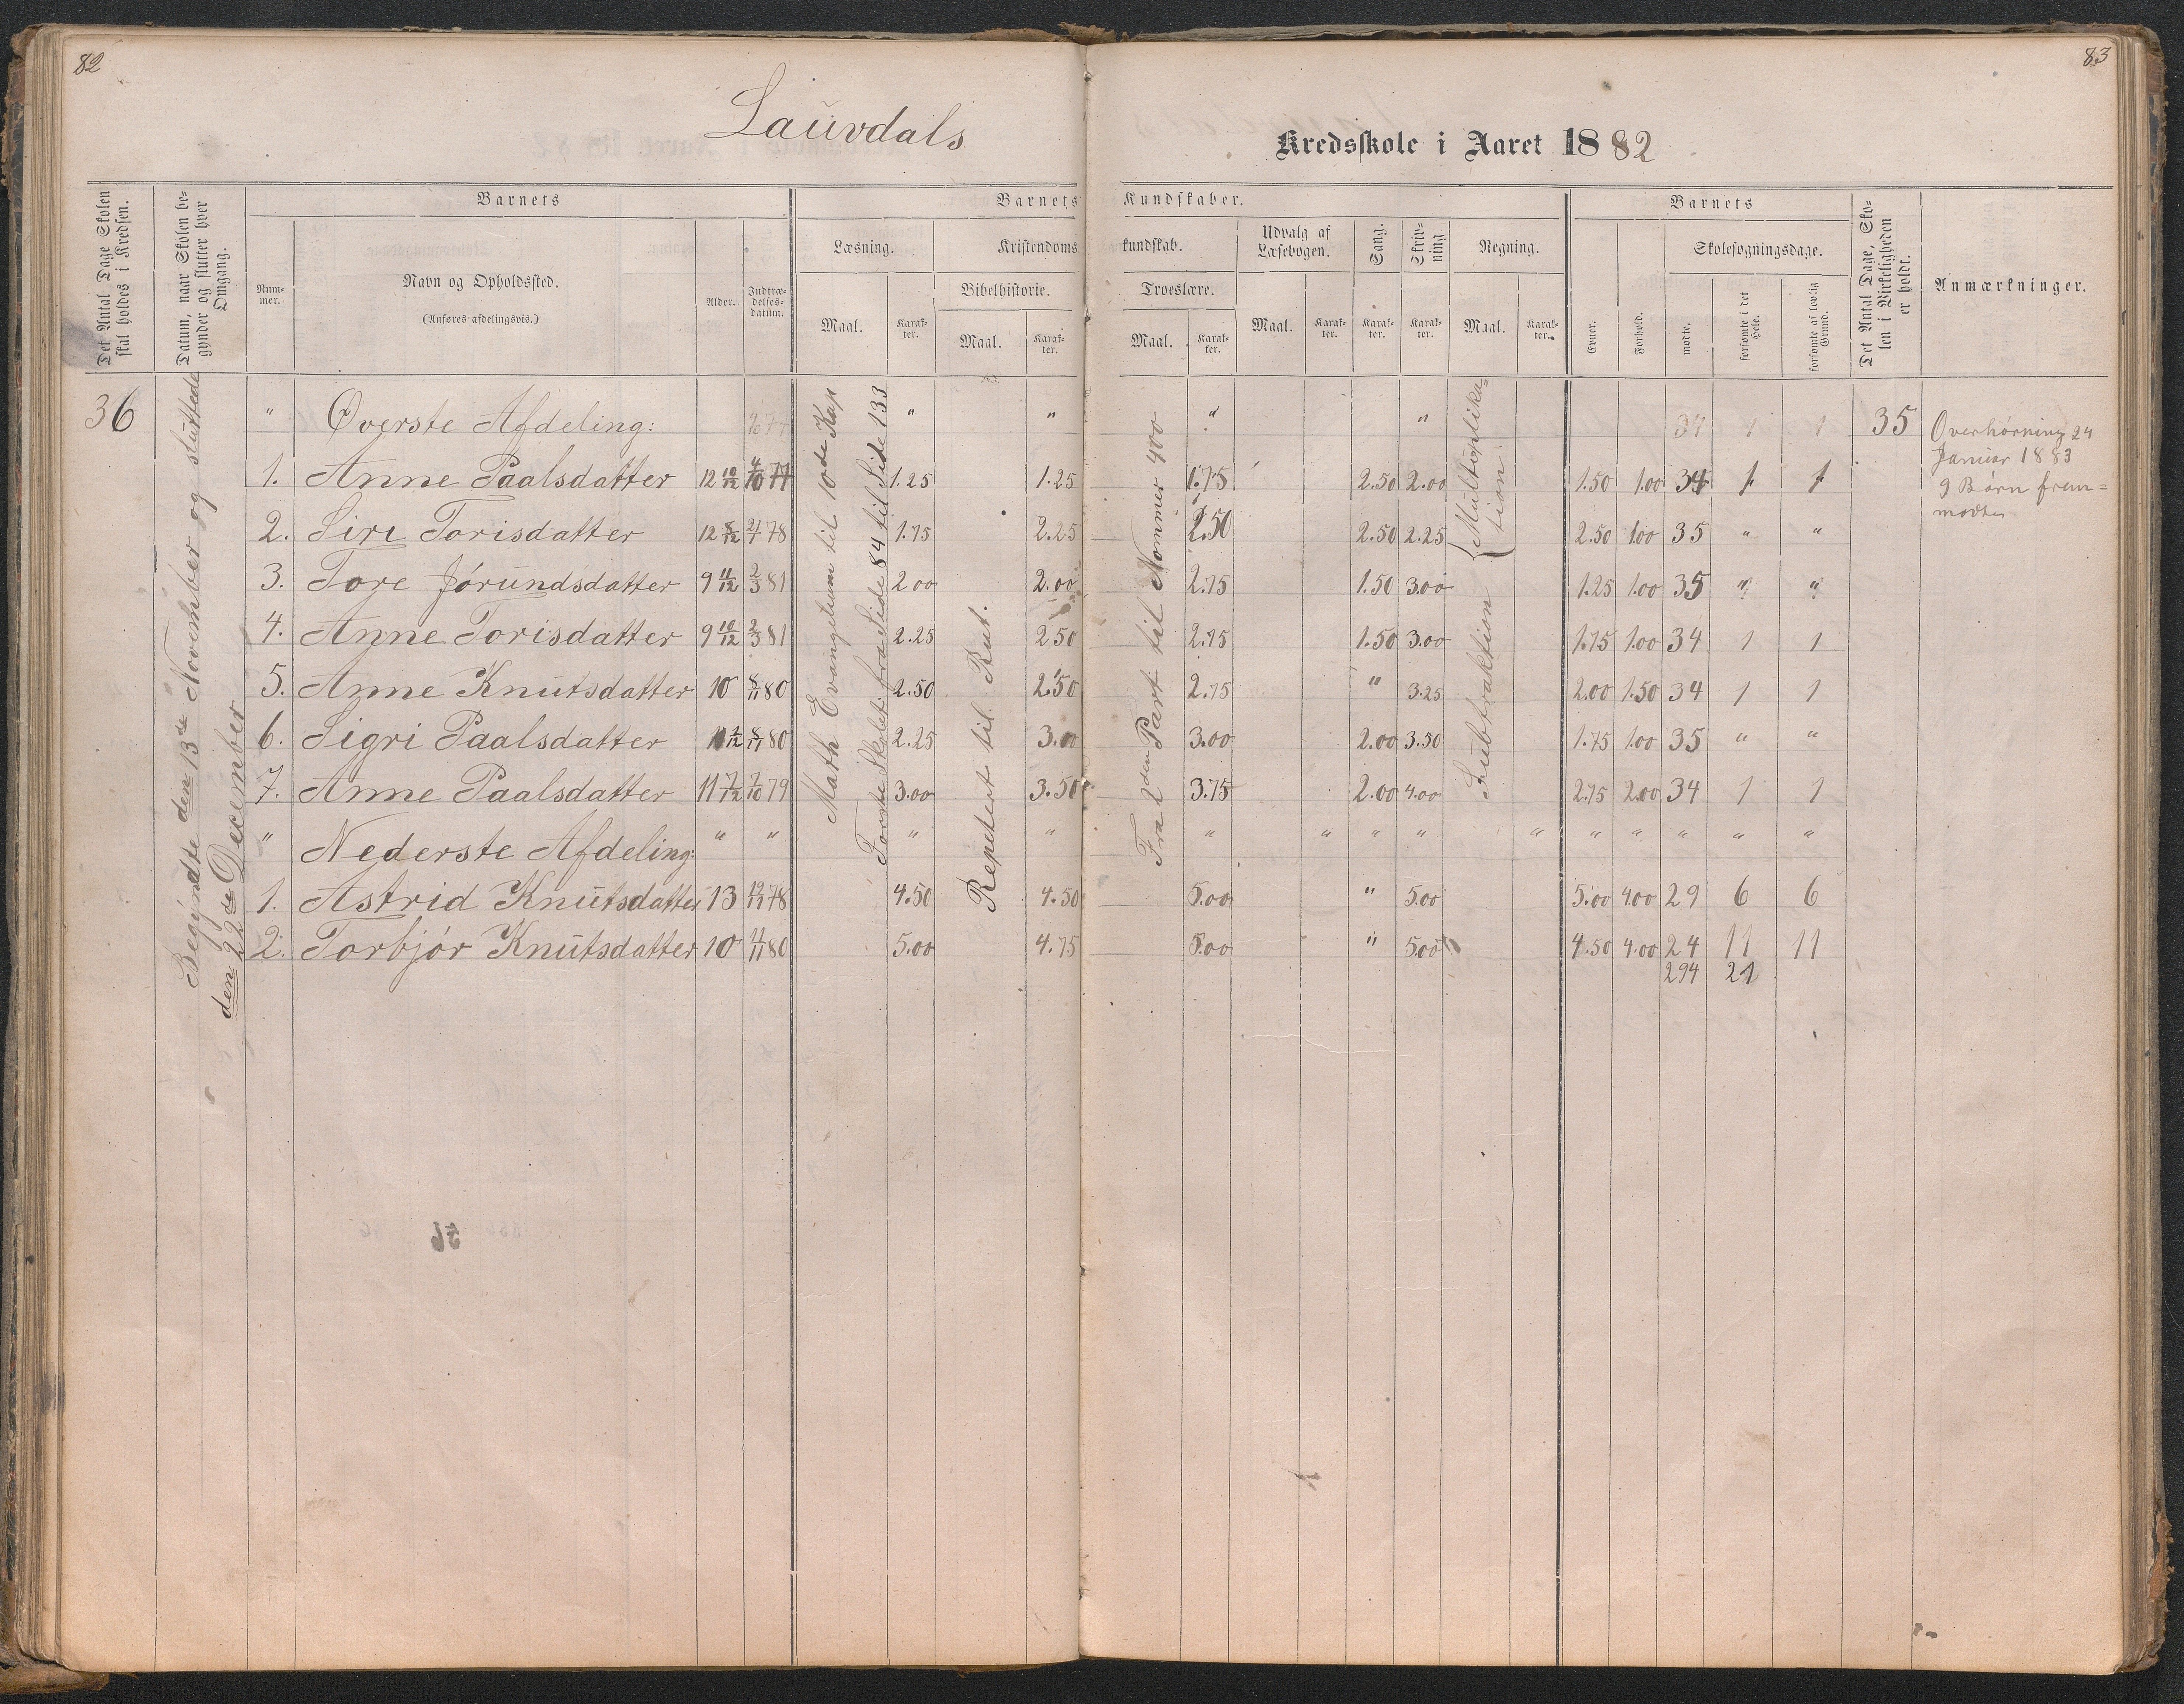 82
83
Lauvdals
Kredsskole i Aaret 1882
Det Antal Dage Skolen skal holdes i Kredsen.
Datum, naar Skolen begynder og slutter hver Omgang.
Barnets
Num-mer.
Navn og Opholdssted.
(Anføres afdelingsvis.)
Alder.
Indtræ-delses-datum.
Barnets Kundskaber.
Læsning.
Maal.
Karak-ter.
Kristendomskundskab.
Bibelhistorie.
Maal.
Karak-ter.
Troeslære.
Maal.
Karak-ter.
Udvalg af Læsebogen.
Maal.
Karak-ter.
Sang.
Karak-ter.
Skriv-ning
Karak-ter.
Regning.
Maal.
Karak-ter.
Barnets
Evner.
Forhold.
Skolesøgningsdage.
mødte.
forsømte i det Hele.
forsømte af lovlig Grund.
Det Antal Dage, Sko-len i Virkeligheden er holdt.
Anmærkninger.
36
Begyndte den 13de November og sluttede
den 22de December
Math Evangelium til 10de Kap
Første Skolet. fra Side 84 til Side 133
Repetert til Rut.
Fra 2den Part til Nommer 400
Multiplika-
tion
Subtraktion
" Øverste Afdeling: " " " " 34 1 1 35
1. Anne Paalsdatter 12 10/12 4/10 77 1.25 1.25 1.75 2.50 2.00 1.50 1.00 34 1 1
2. Siri Torisdatter 12 8/12 2/4 78 1.75 2.25 2.50 2.50 2.25 2.50 1.00 35 " "
3. Tore Jórundsdatter 9 11/12 2/3 81 2.00 2.00 2.75 1.50 3.00 1.25 1.00 35 " "
4. Anne Torisdatter 9 10/12 2/3 81 2.25 2.50 2.75 1.50 3.00 1.75 1.00 34 1 1
5. Anne Knutsdatter 10 8/11 80 2.50 2.50 2.75 " 3.25 2.00 1.50 34 1 1
6. Sigri Paalsdatter 8/11 80 2.25 3.00 3.00 2.00 3.50 1.75 1.00 35 " "
7. Anne Paalsdatter 11 7/12 7/10 79 3.00 3.50 3.75 2.00 4.00 2.75 2.00 34 1 1
" Nederste Afdeling: " " " " " " " " " " " " " "
1. Astrid Knutsdatter 13 78 4.50 4.50 5.00 " 5.00 5.00 4.00 29 6 6
2. Torbjór Knutsdatter 10 11/11 80 5.00 4.75 5.00 " 5.00 4.50 4.00 24 11 11
294 21
Overhørning 24
Januar 1883
9 Børn frem=
mødte